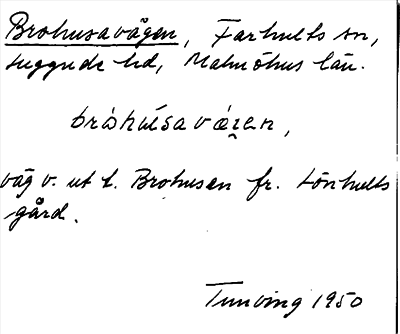 Brohusavägen, Farhults sn,
Luggude hd, Malmöhus län.
bròhúsavä́ɪ̯en,
väg v. ut t. Brohusen fr. Lönhults
gård.
Tunving 1950